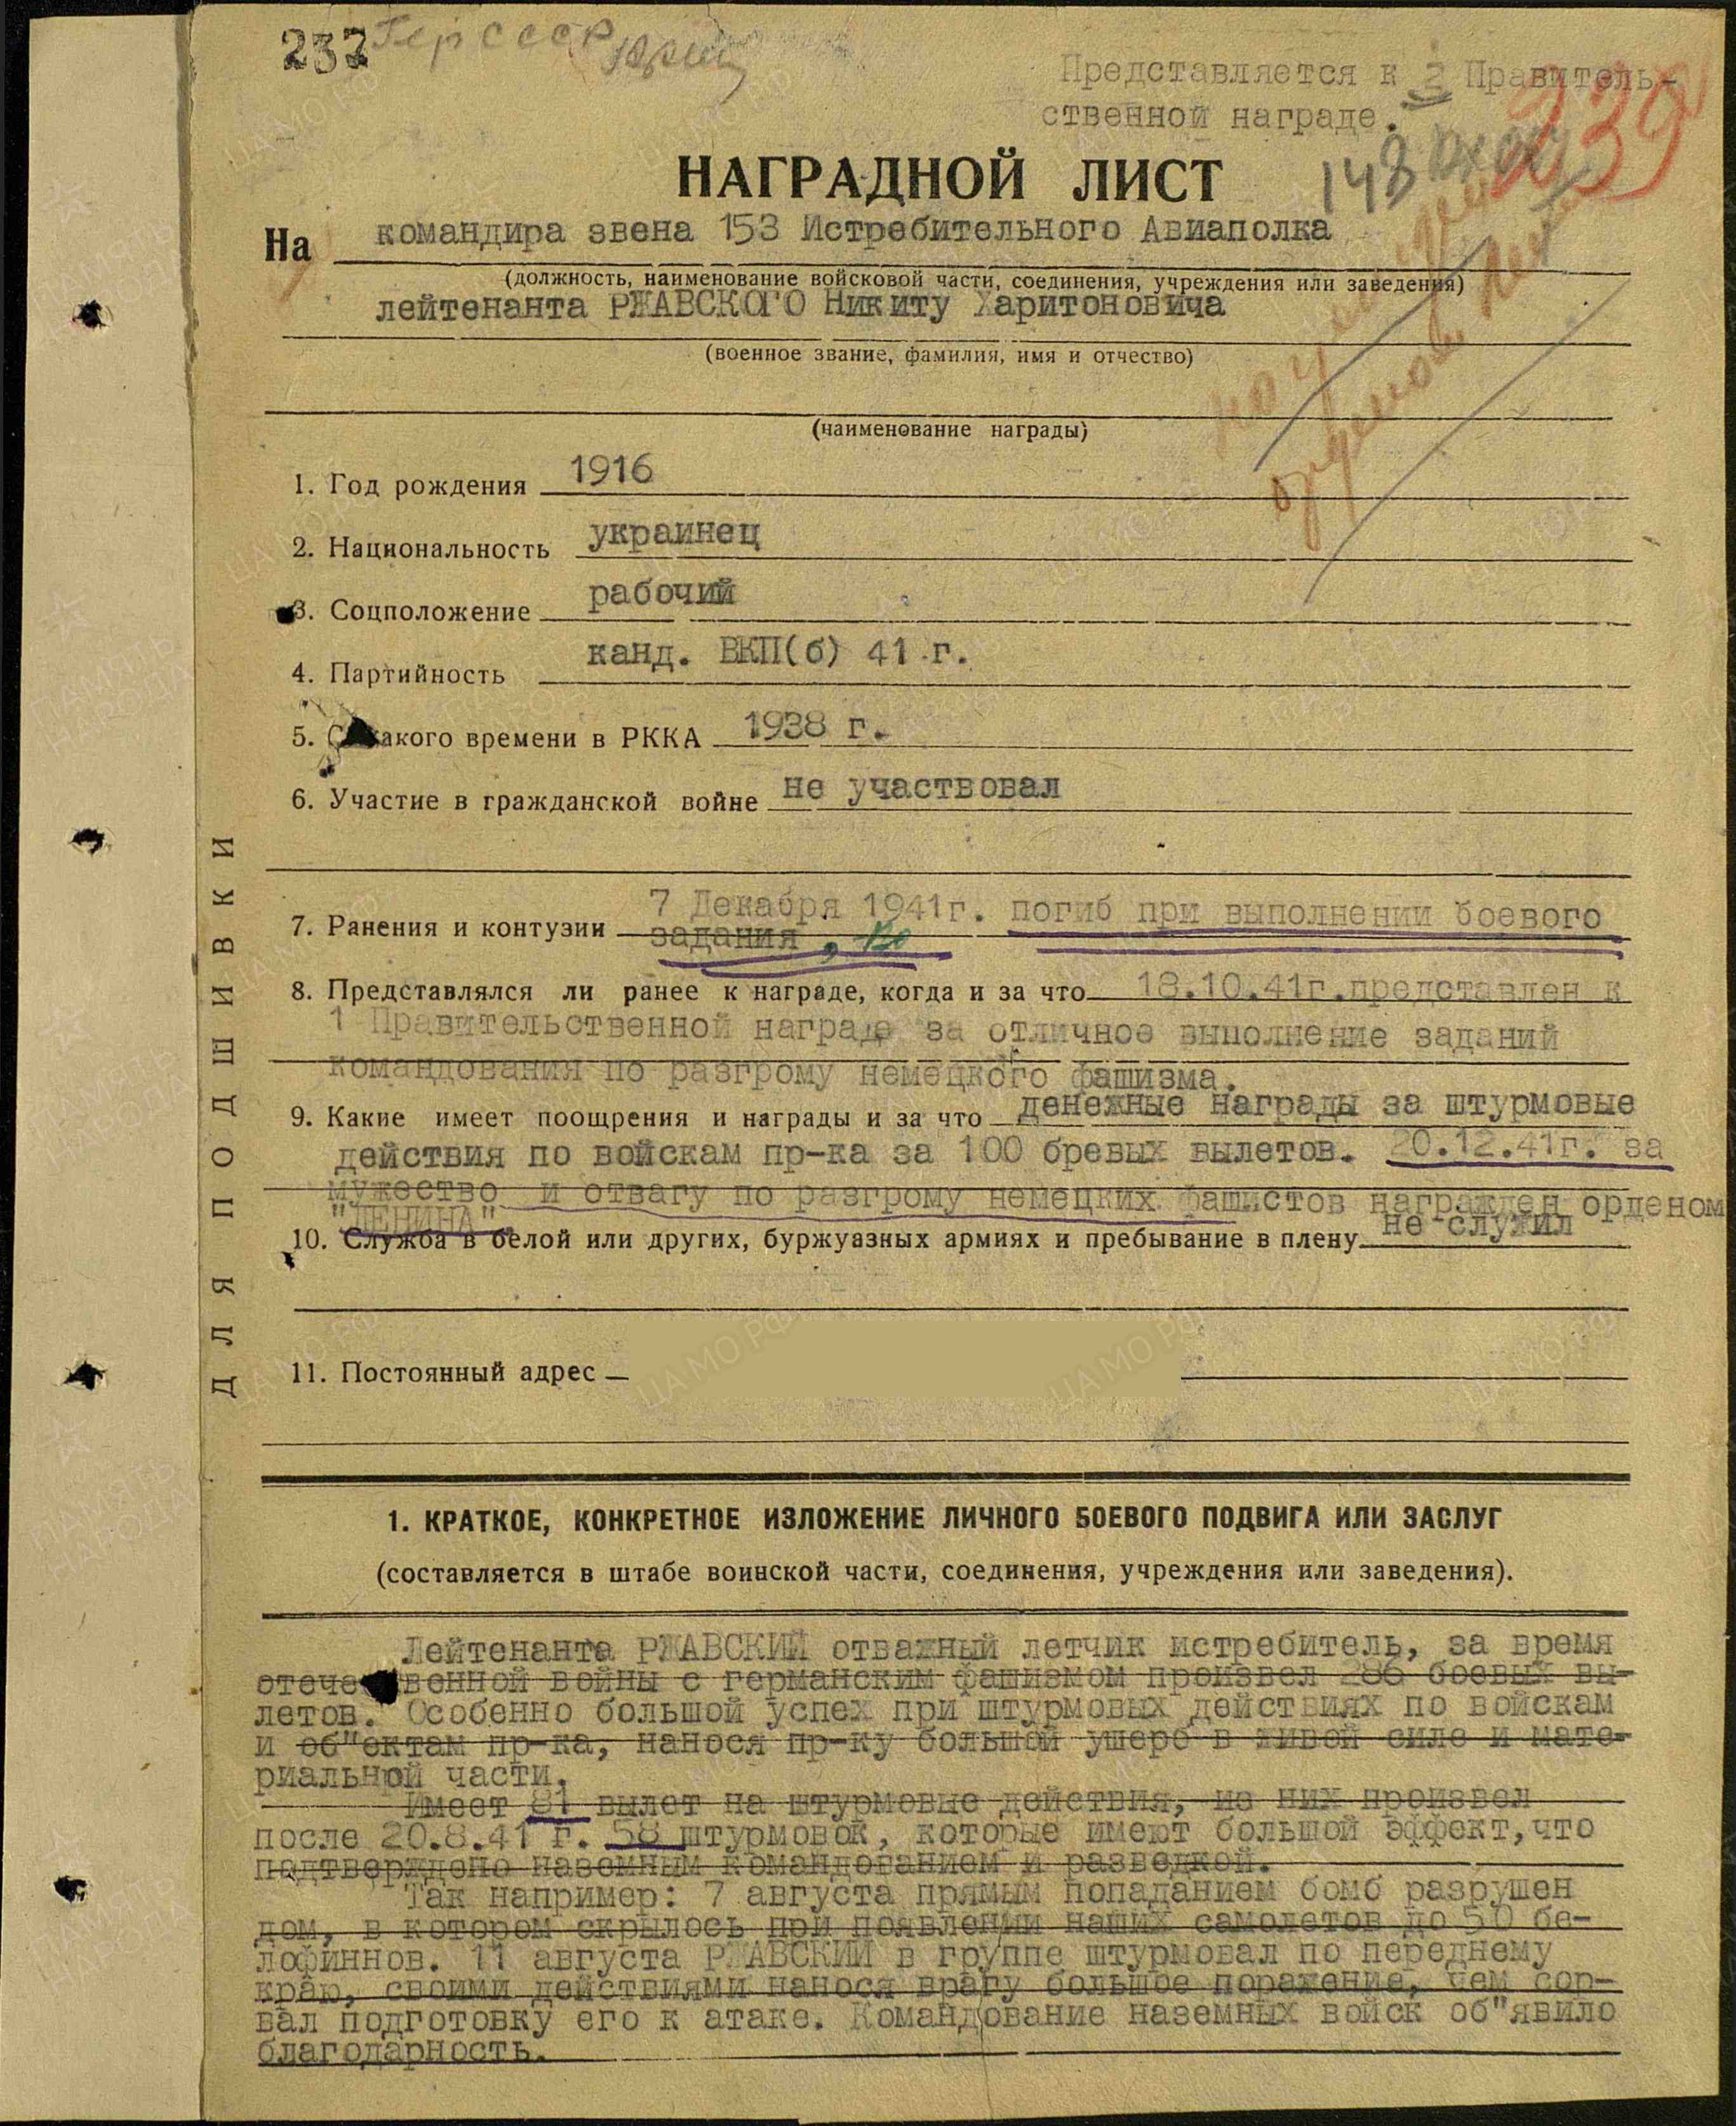 237 Гер СССР
Представляется к 3 Правитель-
ственной награде.
239
143
НАГРАДНОЙ ЛИСТ
На командира звена 153 Истребительного Авиаполка
(должность, наименование войсковой части, соединения, учреждения или заведения)
лейтенанта РЖАВСКОГО Никиту Харитоновича
(военное звание, фамилия, имя и отчество)
(наименование награды)
1. Год рождения 1916
2. Национальность украинец
3. Соцположение рабочий
4. Партийность канд. ВКП(б) 41 г.
5. С какого времени в РККА 1938 г.
6. Участие в гражданской войне не участвовал
7. Ранения и контузии 7 Декабря 1941г. погиб при выполнении боевого
задания
8. Представлялся ли ранее к награде, когда и за что 18.10.41г.представлен к
1 Правительственной награде за отличное выполнение заданий
командования по разгрому немецкого фашизма.
9. Какие имеет поощрения и награды и за что денежные награды за штурмовые
действия по войскам пр-ка за 100 боевых вылетов. 20.12.41г. за
мужество и отвагу по разгрому немецких фашистов награжден орденом
"ЛЕНИНА"
10. Служба в белой или других, буржуазных армиях и пребывание в плену не служил
11. Постоянный адрес
ДЛЯ ПОДШИВКИ
1. КРАТКОЕ, КОНКРЕТНОЕ ИЗЛОЖЕНИЕ ЛИЧНОГО БОЕВОГО ПОДВИГА ИЛИ ЗАСЛУГ
(составляется в штабе воинской части, соединения, учреждения или заведения).
Лейтенанта РЖАВСКИЙ отважный летчик истребитель, за время
отечественной войны с германским фашизмом произвел 286 боевых вы-
летов. Особенно большой успех при штурмовых действиях по войскам
и об"ектам пр-ка, нанося пр-ку большой ущерб в живой силе и мате-
риальной части.
Имеет 81 вылет на штурмовые действия, из них произвел
после 20.8.41 г. 58 штурмовок, которые имеют большой эффект,что
подтверждено наземным командованием и разведкой.
Так например: 7 августа прямым попаданием бомб разрушен
дом, в котором скрылось при появлении наших самолетов до 50 бе-
лофиннов. 11 августа РЖАВСКИЙ в группе штурмовал по переднему
краю, своими действиями нанося врагу большое поражение, чем сор-
вал подготовку его к атаке. Командование наземных войск об"явило
благодарность.